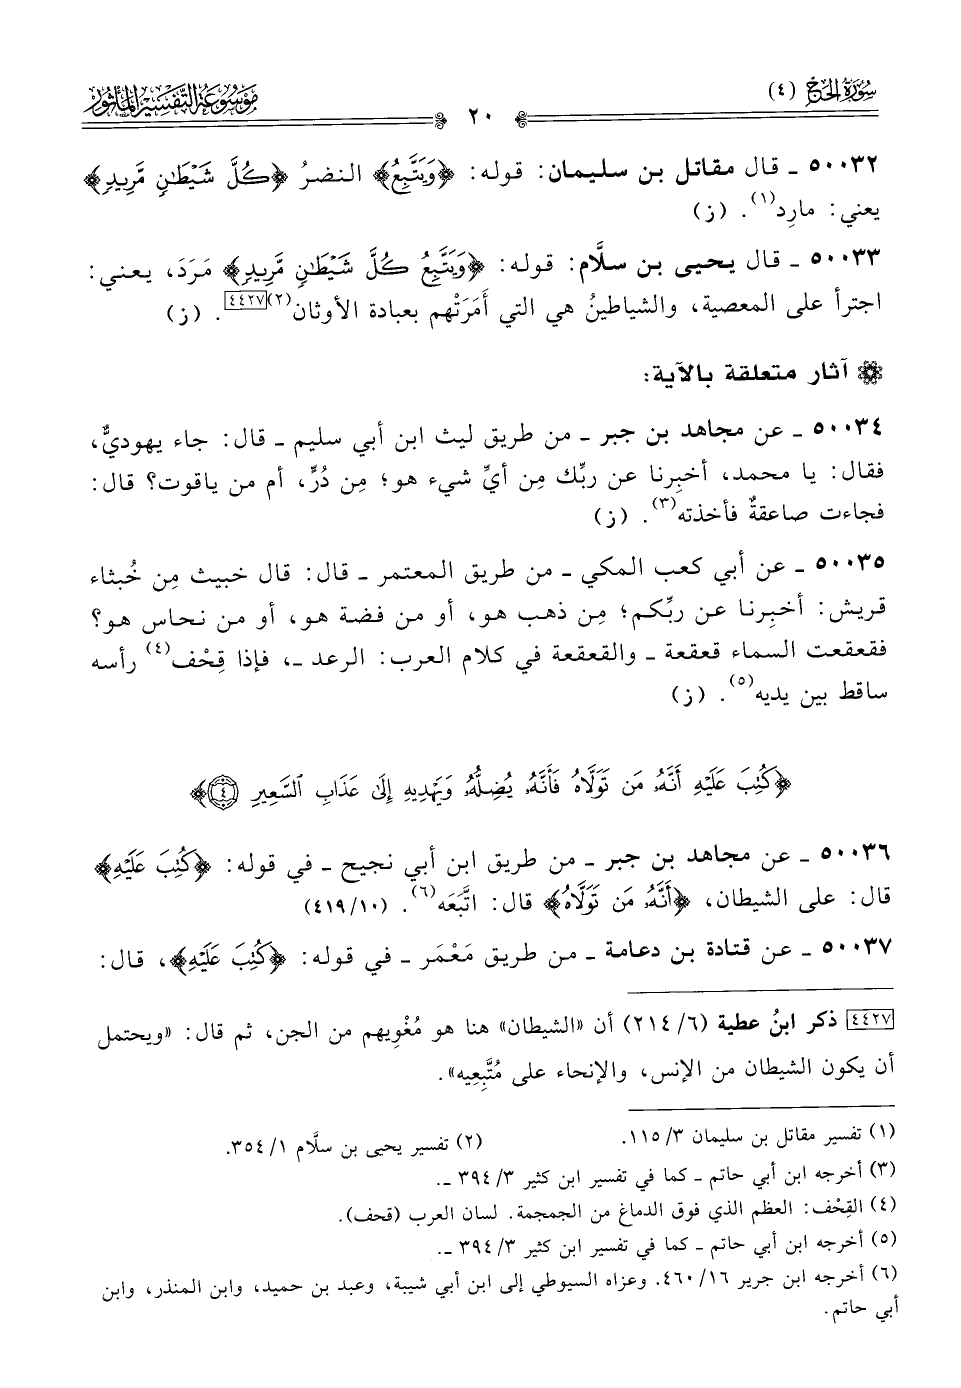 سُورَةُ الحَجِّ (٤)
٢٠
مَوْسُوعَةُ التَّفْسِيرِ المَأْثُور
٥٠٠٣٢ ـ قال مقاتل بن سليمان: قوله: ﴿وَيَتَّبِعُ﴾ النضرُ ﴿كُلَّ شَيْطَانٍ مَّرِيدٍ﴾
يعني: مارِد(١). (ز)
٥٠٠٣٣ ـ قال يحيى بن سلَّام: قوله: ﴿وَيَتَّبِعُ كُلَّ شَيْطَانٍ مَّرِيدٍ﴾ مَرَدَ، يعني:
اجترأ على المعصية، والشياطينُ هي التي أَمَرَتْهم بعبادة الأوثان(٢)[٤٤٢٧]. (ز)
آثار متعلقة بالآية:
٥٠٠٣٤ ـ عن مجاهد بن جبر ـ من طريق ليث ابن أبي سليم ـ قال: جاء يهوديٌّ،
فقال: يا محمد، أخبِرنا عن ربِّك مِن أيِّ شيء هو؛ مِن دُرٍّ، أم من ياقوت؟ قال:
فجاءت صاعقةٌ فأخذته(٣). (ز)
٥٠٠٣٥ ـ عن أبي كعب المكي ـ من طريق المعتمر ـ قال: قال خبيث مِن خُبثاء
قريش: أخبِرنا عن ربِّكم؛ مِن ذهب هو، أو من فضة هو، أو من نحاس هو؟
فقعقعت السماء قعقعة ـ والقعقعة في كلام العرب: الرعد ـ، فإذا قِحْف(٤) رأسه
ساقط بين يديه(٥). (ز)
﴿كُتِبَ عَلَيْهِ أَنَّهُۥ مَن تَوَلَّاهُ فَأَنَّهُۥ يُضِلُّهُۥ وَيَهْدِيهِ إِلَىٰ عَذَابِ ٱلسَّعِيرِ ٤﴾
٥٠٠٣٦ ـ عن مجاهد بن جبر ـ من طريق ابن أبي نجيح ـ في قوله: ﴿كُتِبَ عَلَيْهِ﴾
قال: على الشيطان، ﴿أَنَّهُۥ مَن تَوَلَّاهُ﴾ قال: اتَّبَعَه(٦). (٤١٩/١٠)
٥٠٠٣٧ ـ عن قتادة بن دعامة ـ من طريق مَعْمَر ـ في قوله: ﴿كُتِبَ عَلَيْهِ﴾، قال:
[٤٤٢٧] ذكر ابنُ عطية (٢١٤/٦) أن «الشيطان» هنا هو مُغْوِيهم من الجن، ثم قال: «ويحتمل
أن يكون الشيطان من الإنس، والإنحاء على مُتَّبِعِيه».
(١) تفسير مقاتل بن سليمان ٣/ ١١٥. (٢) تفسير يحيى بن سلَّام ١/ ٣٥٤.
(٣) أخرجه ابن أبي حاتم ـ كما في تفسير ابن كثير ٣/ ٣٩٤ ـ.
(٤) القِحْف: العظم الذي فوق الدماغ من الجمجمة. لسان العرب (قحف).
(٥) أخرجه ابن أبي حاتم ـ كما في تفسير ابن كثير ٣/ ٣٩٤ ـ.
(٦) أخرجه ابن جرير ١٦/ ٤٦٠. وعزاه السيوطي إلى ابن أبي شيبة، وعبد بن حميد، وابن المنذر، وابن
أبي حاتم.